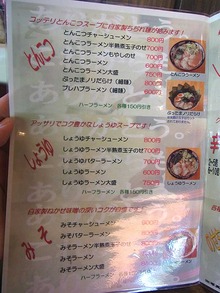 コッテリとんこつスープに自家製ちぢれ麺が絡みます!
とんこつ
とんこつチャーシューメン 800円
とんこつラーメン半熟煮玉子のせ 700円
とんこつラーメンもやしのせ 700円
とんこつラーメン 600円
とんこつラーメン大盛 750円
ぶったまノリだらけ(細麺)
プレハブラーメン(細麺)
ハーフラーメン 各種150円引き
とんこつラーメン
ぶったまノリだらけ
アッサリでコク豊かなしょうゆスープです!
しょうゆ
しょうゆチャーシューメン 800円
しょうゆバターラーメン 700円
しょうゆラーメン半熟煮玉子のせ 700円
しょうゆラーメン 600円
しょうゆラーメン大盛 750円
ハーフラーメン 各種150円引き
しょうゆラーメン
みそ
みそチャーシューメン
みそバターラーメン
みそラーメン半熟煮玉子のせ
みそラーメン
みそラーメン大盛